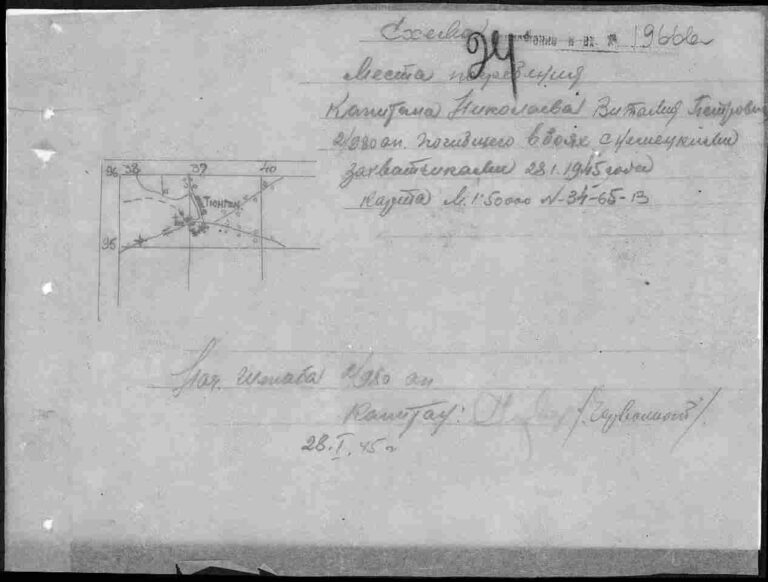 Схема
24 ение к вх № 1966в
Места погребения
Капитана Николаева Виталия Петрович
2/980 ап. погибшего в боях с немецкими
захватчиками 28.1.1945 года
карта М. 1:50000 N-34-65-В
96 38 39 40
Тюнген
95
Нач. Штаба 2/980 ап
Капитан:
28.I.45 г